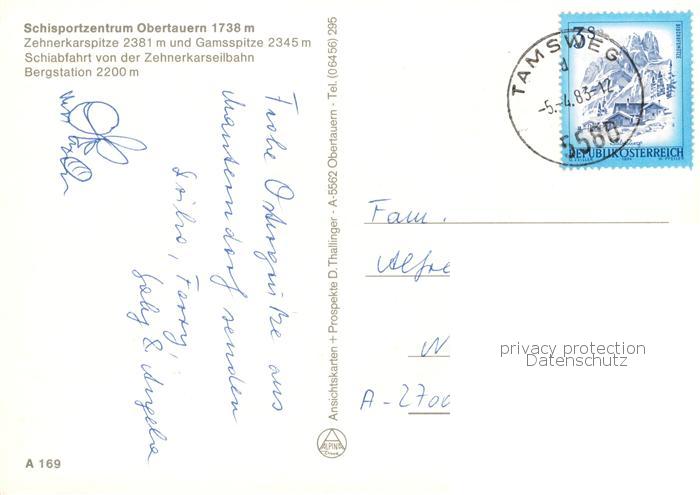 Schisportzentrum Obertauern 1738 m
Zehnerkarspitze 2381 m und Gamsspitze 2345 m
Schiabfahrt von der Zehnerkarseilbahn
Bergstation 2200 m
Frohe Ostergrüße aus
Mauterndorf senden
Ferry,
Gaby & Angela
A 169
Ansichtskarten + Prospekte D. Thallinger - A-5562 Obertauern - Tel. (06456) 295
ALPINA
3S
TAMSWEG
-5.-4.83-12
5580
REPUBLIK ÖSTERREICH
Fam.
Alfre
W
A-2700
privacy protection
Datenschutz